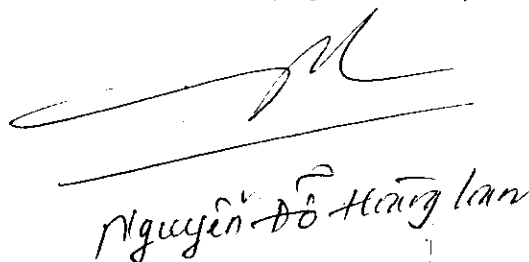 Nguyễn Đỗ Hoàng Lan